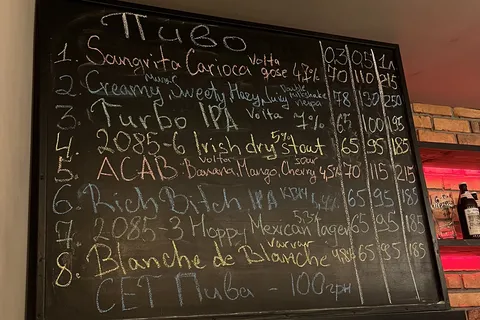 Пиво
0,3 0,5 1л
1. Sangrita Carioca Volta gose 4,7% 70 110 215
2. Creamy, Sweety, Hazy, Juicy Double milkshake 78 130 250
3. Turbo IPA Volta 7% 65 100 195
4. 2085-6 Irish dry stout 5% 65 95 185
5. ACAB Volta Banana, Mango, Cherry sour 4,5% 70 115 215
6. Rich Bitch IPA 65 95 185
7. 2085-3 Hoppy Mexican lager 65 95 185
8. Blanche de Blanche Varvar 65 95 185
СЕТ Пива - 100 грн